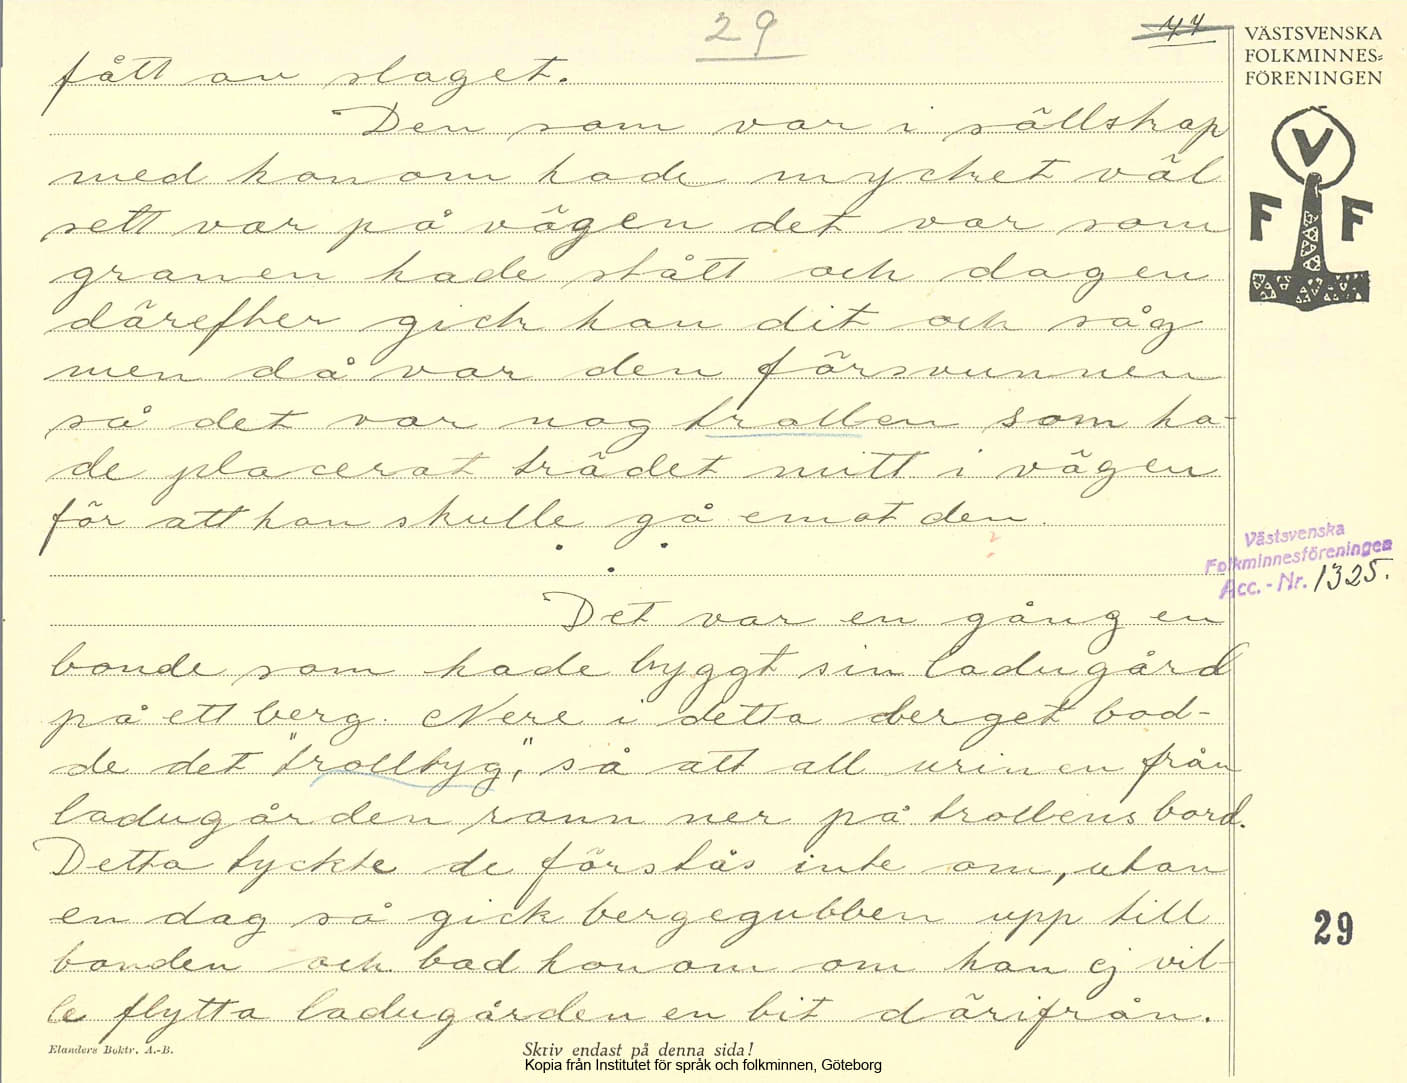 29
44
VÄSTSVENSKA
FOLKMINNES=
FÖRENINGEN
V
F F
fått av slaget.
Den som var i sällskap
med honom hade mycket väl
sett var på vägen det var som
granen hade stått och dagen
därefter gick han dit och såg
men då var den försvunnen
så det var nog trollen som ha-
de placerat trädet mitt i vägen
för att han skulle gå emot den.
Västsvenska
Folkminnesföreningen
Acc.-Nr. 1325.
Det var en gång en
bonde som hade byggt sin ladugård
på ett berg. Nere i detta berget bod-
de det "trolltyg", så att all urinen från
ladugården rann ner på trollens bord.
Detta tyckte de förstås inte om, utan
en dag så gick bergegubben upp till
bonden och bad honom om han ej vil-
le flytta ladugården en bit därifrån.
29
Elanders Boktr. A.-B.
Skriv endast på denna sida!
Kopia från Institutet för språk och folkminnen, Göteborg